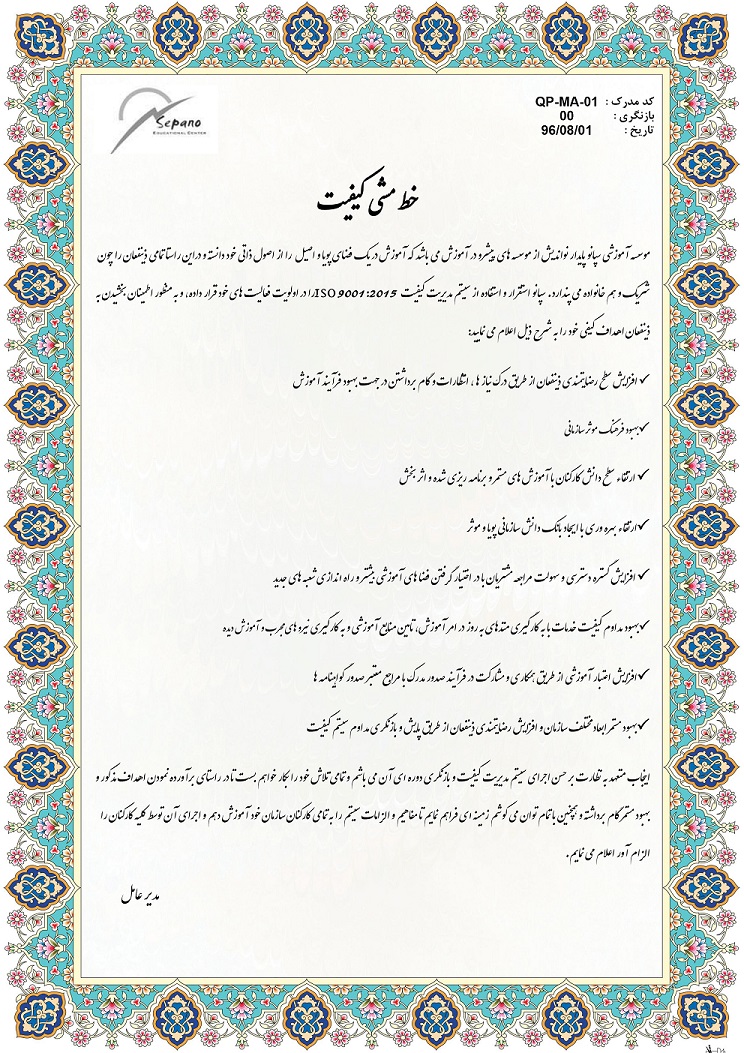 Sepano
EDUCATIONAL CENTER
کد مدرک : QP-MA-01
بازنگری : 00
تاریخ : 96/08/01
خط مشی کیفیت
موسسه آموزشی سپانو پایدار نواندیش از موسسه های پیشرو در آموزش می باشد که آموزش در یک فضای پویا و اصیل را از اصول ذاتی خود دانسته و در این راستا تمامی ذینفعان را چون
شریک و هم خانواده می پندارد. سپانو استقرار و استفاده از سیستم مدیریت کیفیت ISO 9001:2015 را در اولویت فعالیت های خود قرار داده، و به منظور اطمینان بخشیدن به
ذینفعان اهداف کیفی خود را به شرح ذیل اعلام می نماید:
✓ افزایش سطح رضایتمندی ذینفعان از طریق درک نیاز ها ، انتظارات و گام برداشتن در جهت بهبود فرآیند آموزش
✓ بهبود فرهنگ موثر سازمانی
✓ ارتقاء سطح دانش کارکنان با آموزش های مستمر و برنامه ریزی شده و اثر بخش
✓ ارتقاء بهره وری با ایجاد بانک دانش سازمانی پویا و موثر
✓ افزایش گستره دسترسی و سهولت مراجعه مشتریان با در اختیار گرفتن فضا های آموزشی بیشتر و راه اندازی شعبه های جدید
✓ بهبود مداوم کیفیت خدمات با به کارگیری متدهای به روز در امر آموزش، تامین منابع آموزشی و به کارگیری نیرو های مجرب و آموزش دیده
✓ افزایش اعتبار آموزشی از طریق همکاری و مشارکت در فرآیند صدور مدرک با مراجع معتبر صدور گواهینامه ها
✓ بهبود مستمر ابعاد مختلف سازمان و افزایش رضایتمندی ذینفعان از طریق پایش و بازنگری مداوم سیستم کیفیت
اینجانب متعهد به نظارت بر حسن اجرای سیستم مدیریت کیفیت و بازنگری دوره ای آن می باشم و تمامی تلاش خود را بکار خواهم بست تا در راستای برآورده نمودن اهداف مذکور و
بهبود مستمر گام برداشته و همچنین با تمام توان می کوشم زمینه ای فراهم نمایم تا مفاهیم و الزامات سیستم را به تمامی کارکنان سازمان خود آموزش دهم و اجرای آن توسط کلیه کارکنان را
الزام آور اعلام می نمایم.
مدیر عامل